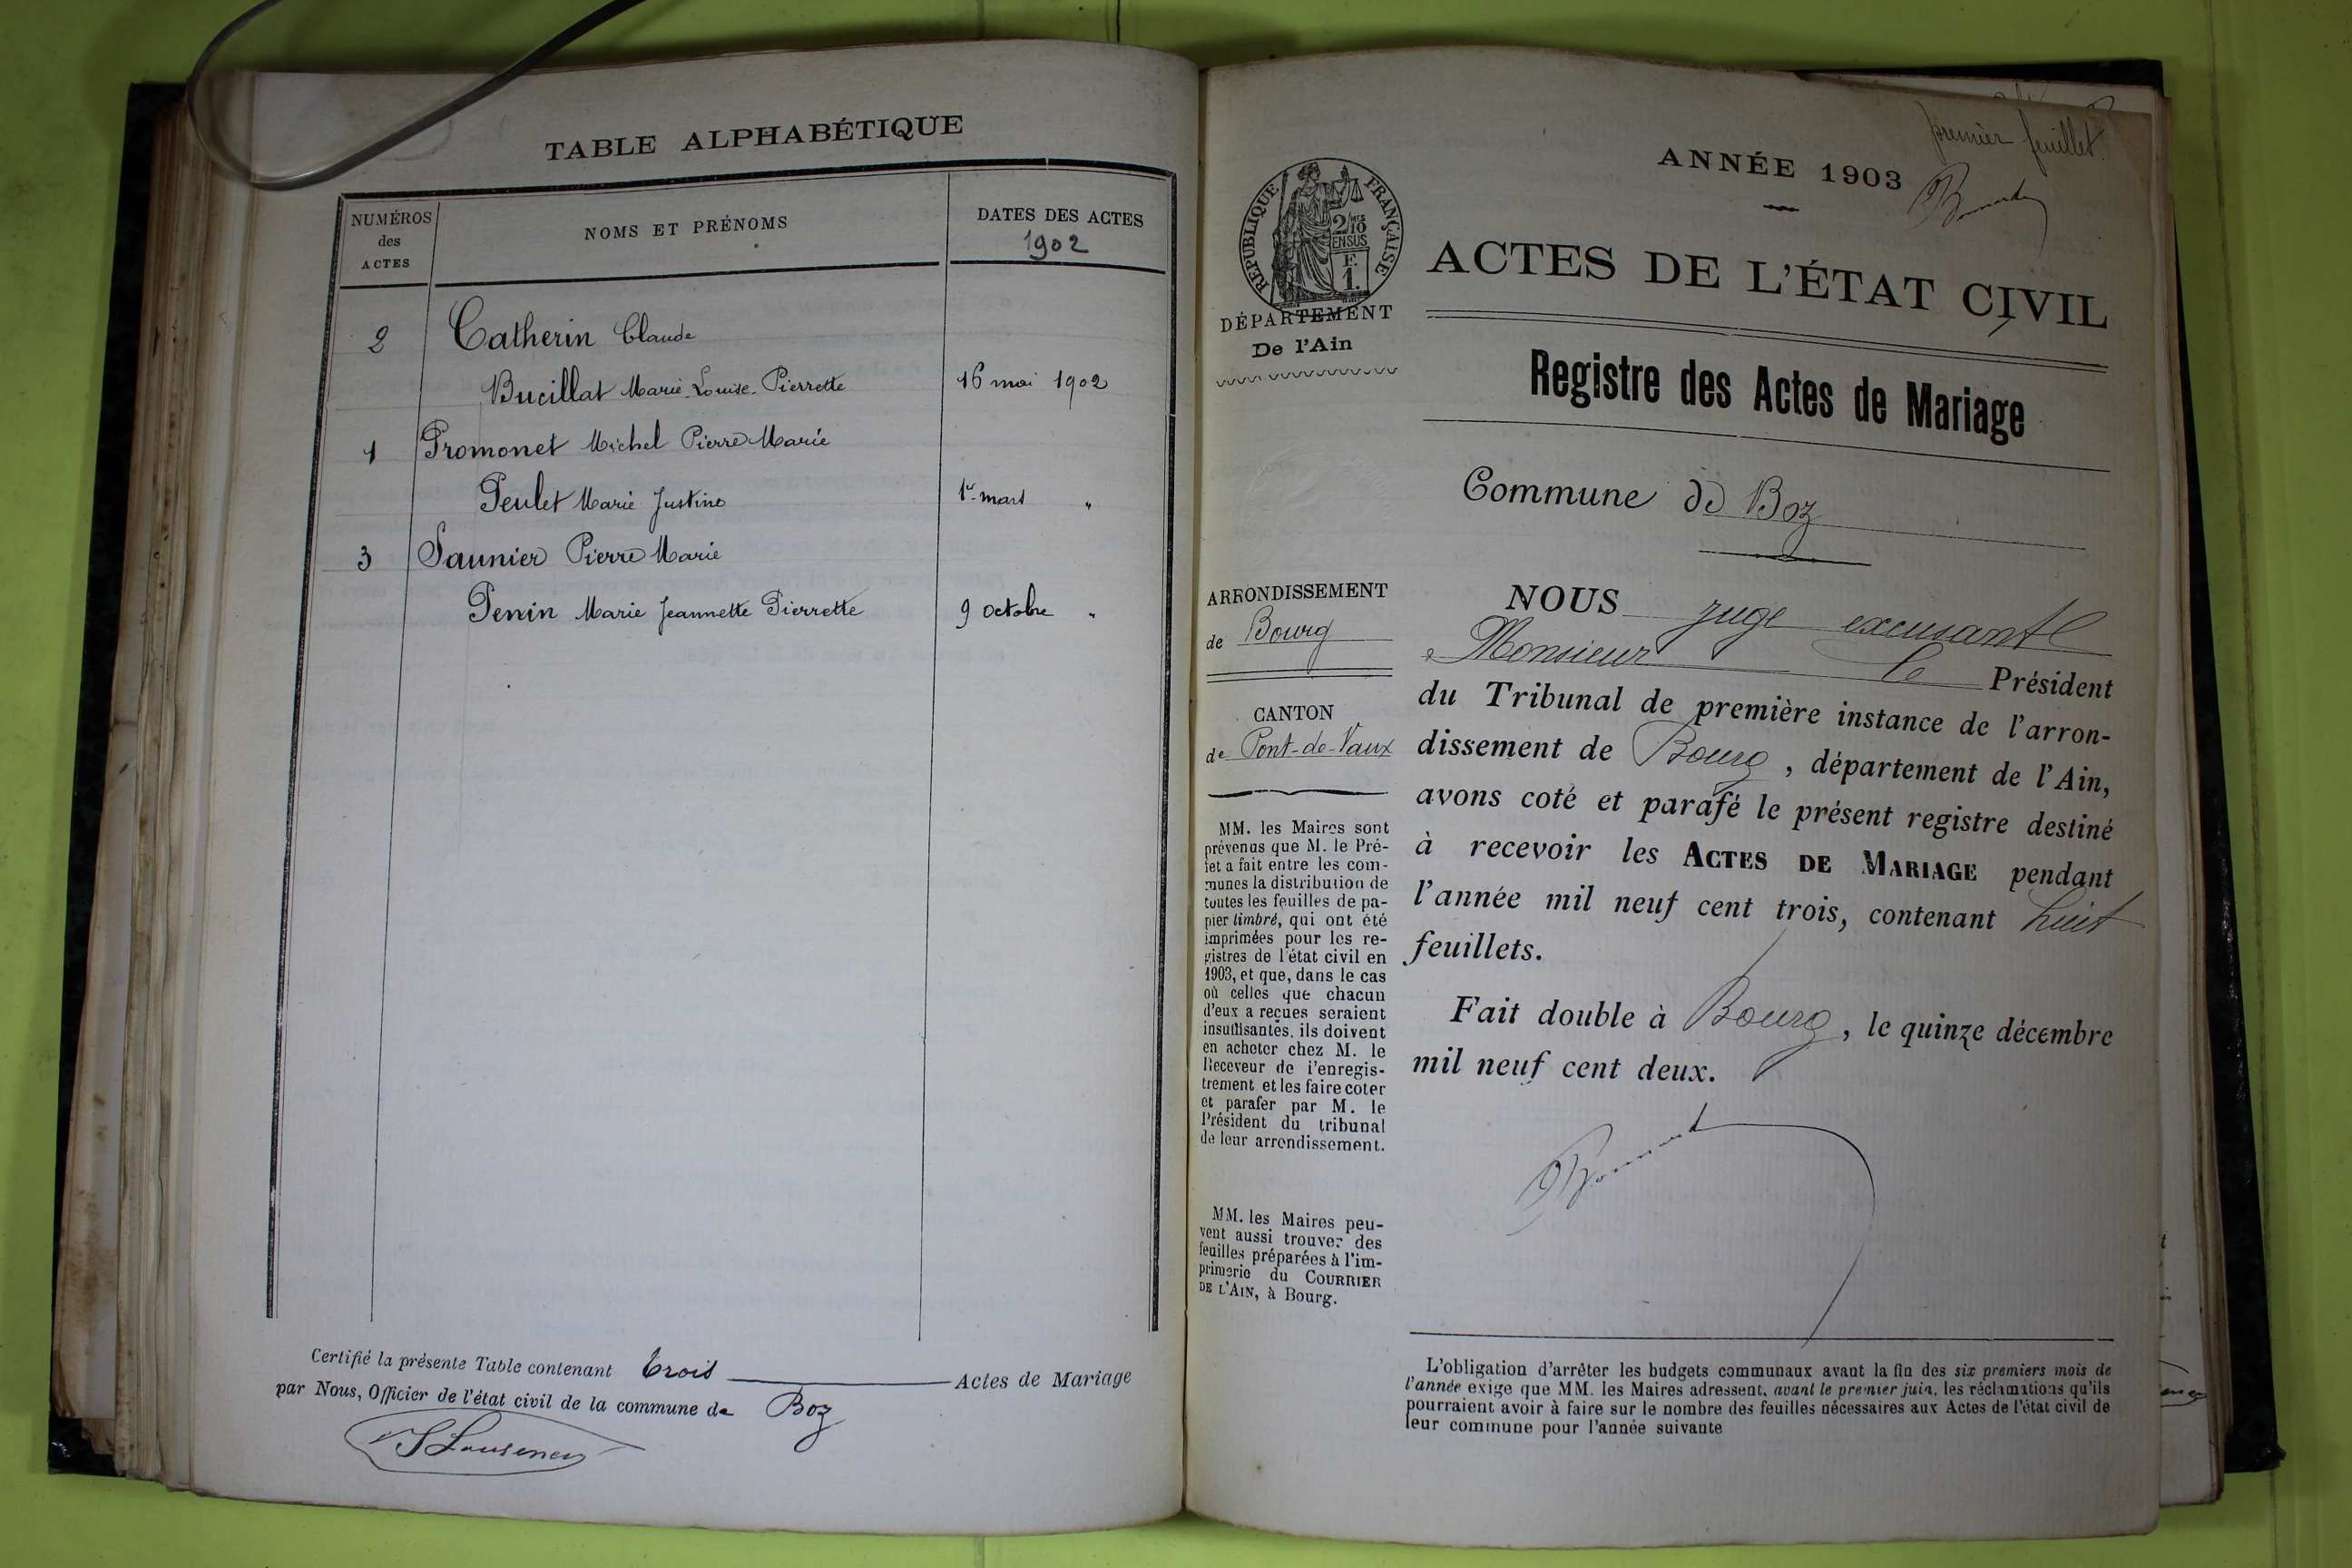 TABLE ALPHABÉTIQUE
NUMÉROS
des
ACTES
NOMS ET PRÉNOMS
DATES DES ACTES
1902
2 Catherin Claude
Bucillat Marie-Louise-Pierrette 16 mai 1902
1 Promonet Michel Pierre Marie
Peulet Marie Justine 1er mars "
3 Saunier Pierre Marie
Penin Marie Jeannette Pierrette 9 octobre "
Certifié la présente Table contenant trois Actes de Mariage
par Nous, Officier de l'état civil de la commune de Boz
premier feuillet
ANNÉE 1903
RÉPUBLIQUE FRANÇAISE
2/10
EN SUS
F.
1.
ACTES DE L'ÉTAT CIVIL
DÉPARTEMENT
De l'Ain
Registre des Actes de Mariage
Commune de Boz
ARRONDISSEMENT
de Bourg
CANTON
de Pont-de-Vaux
MM. les Maires sont
prévenus que M. le Pré-
fet a fait entre les com-
munes la distribution de
toutes les feuilles de pa-
pier timbré, qui ont été
imprimées pour les re-
gistres de l'état civil en
1903, et que, dans le cas
où celles que chacun
d'eux a reçues seraient
insuffisantes, ils doivent
en acheter chez M. le
Receveur de l'enregis-
trement et les faire coter
et parafer par M. le
Président du tribunal
de leur arrondissement.
MM. les Maires peu-
vent aussi trouver des
feuilles préparées à l'im-
primerie du COURRIER
DE L'AIN, à Bourg.
NOUS juge
Monsieur le Président
du Tribunal de première instance de l'arron-
dissement de Bourg, département de l'Ain,
avons coté et parafé le présent registre destiné
à recevoir les ACTES DE MARIAGE pendant
l'année mil neuf cent trois, contenant huit
feuillets.
Fait double à Bourg, le quinze décembre
mil neuf cent deux.
L'obligation d'arrêter les budgets communaux avant la fin des six premiers mois de
l'année exige que MM. les Maires adressent, avant le premier juin, les réclamations qu'ils
pourraient avoir à faire sur le nombre des feuilles nécessaires aux Actes de l'état civil de
leur commune pour l'année suivante